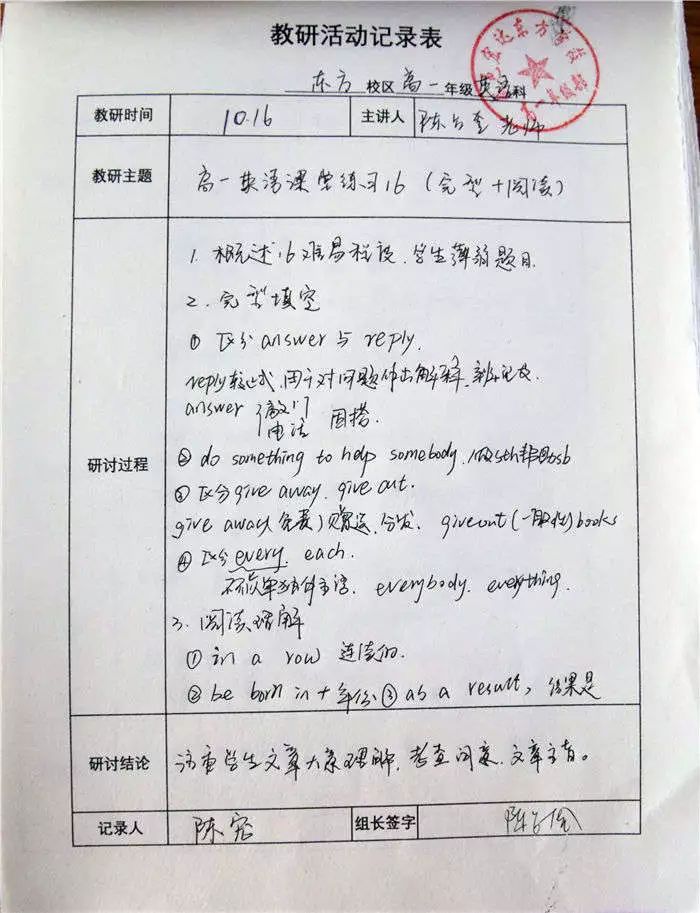 教研活动记录表
东方 校区 高一 年级 英语 科
教研时间 10.16 主讲人 陈 老师
教研主题 高一英语课堂练习16（完型+阅读）
1. 概述16难易程度、学生薄弱题目.
2. 完型填空
① 区分answer与reply.
reply较正式,用于对问题作出解释、
answer 敲门 电话 固搭.
研讨过程
② do something to help somebody. 做sth帮助sb
③ 区分give away. give out.
give away(免费)赠送、分发、 give out(一般性)books
④ 区分every. each.
不能单独作主语. everybody. everything.
3. 阅读理解
① in a row 连续的.
② be born in + 年份 ③ as a result, 结果是
研讨结论 注重学生文章大意理解, 考查问意、文章主旨。
记录人 陈宛 组长签字